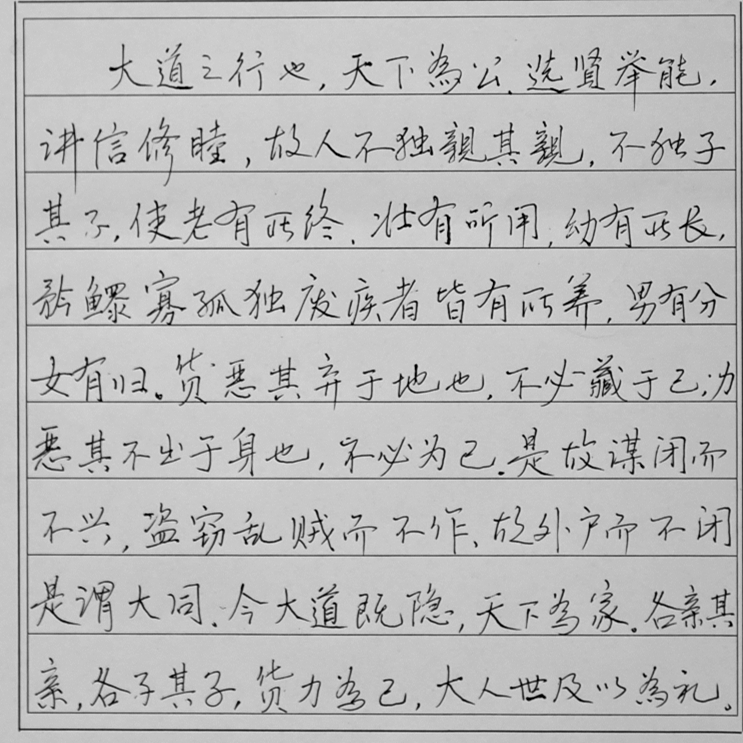 大道之行也,天下為公.选贤举能,
讲信修睦,故人不独親其親,不独子
其子,使老有所终,壮有所用,幼有所长,
矜鳏寡孤独废疾者皆有所养,男有分
女有归。货恶其弃于地也,不必藏于己;力
恶其不出于身也,不必为己.是故谋闭而
不兴,盗窃乱贼而不作、故外户而不闭
是谓大同.今大道既隐,天下為家.各亲其
亲,各子其子,货力為己,大人世及以為礼。